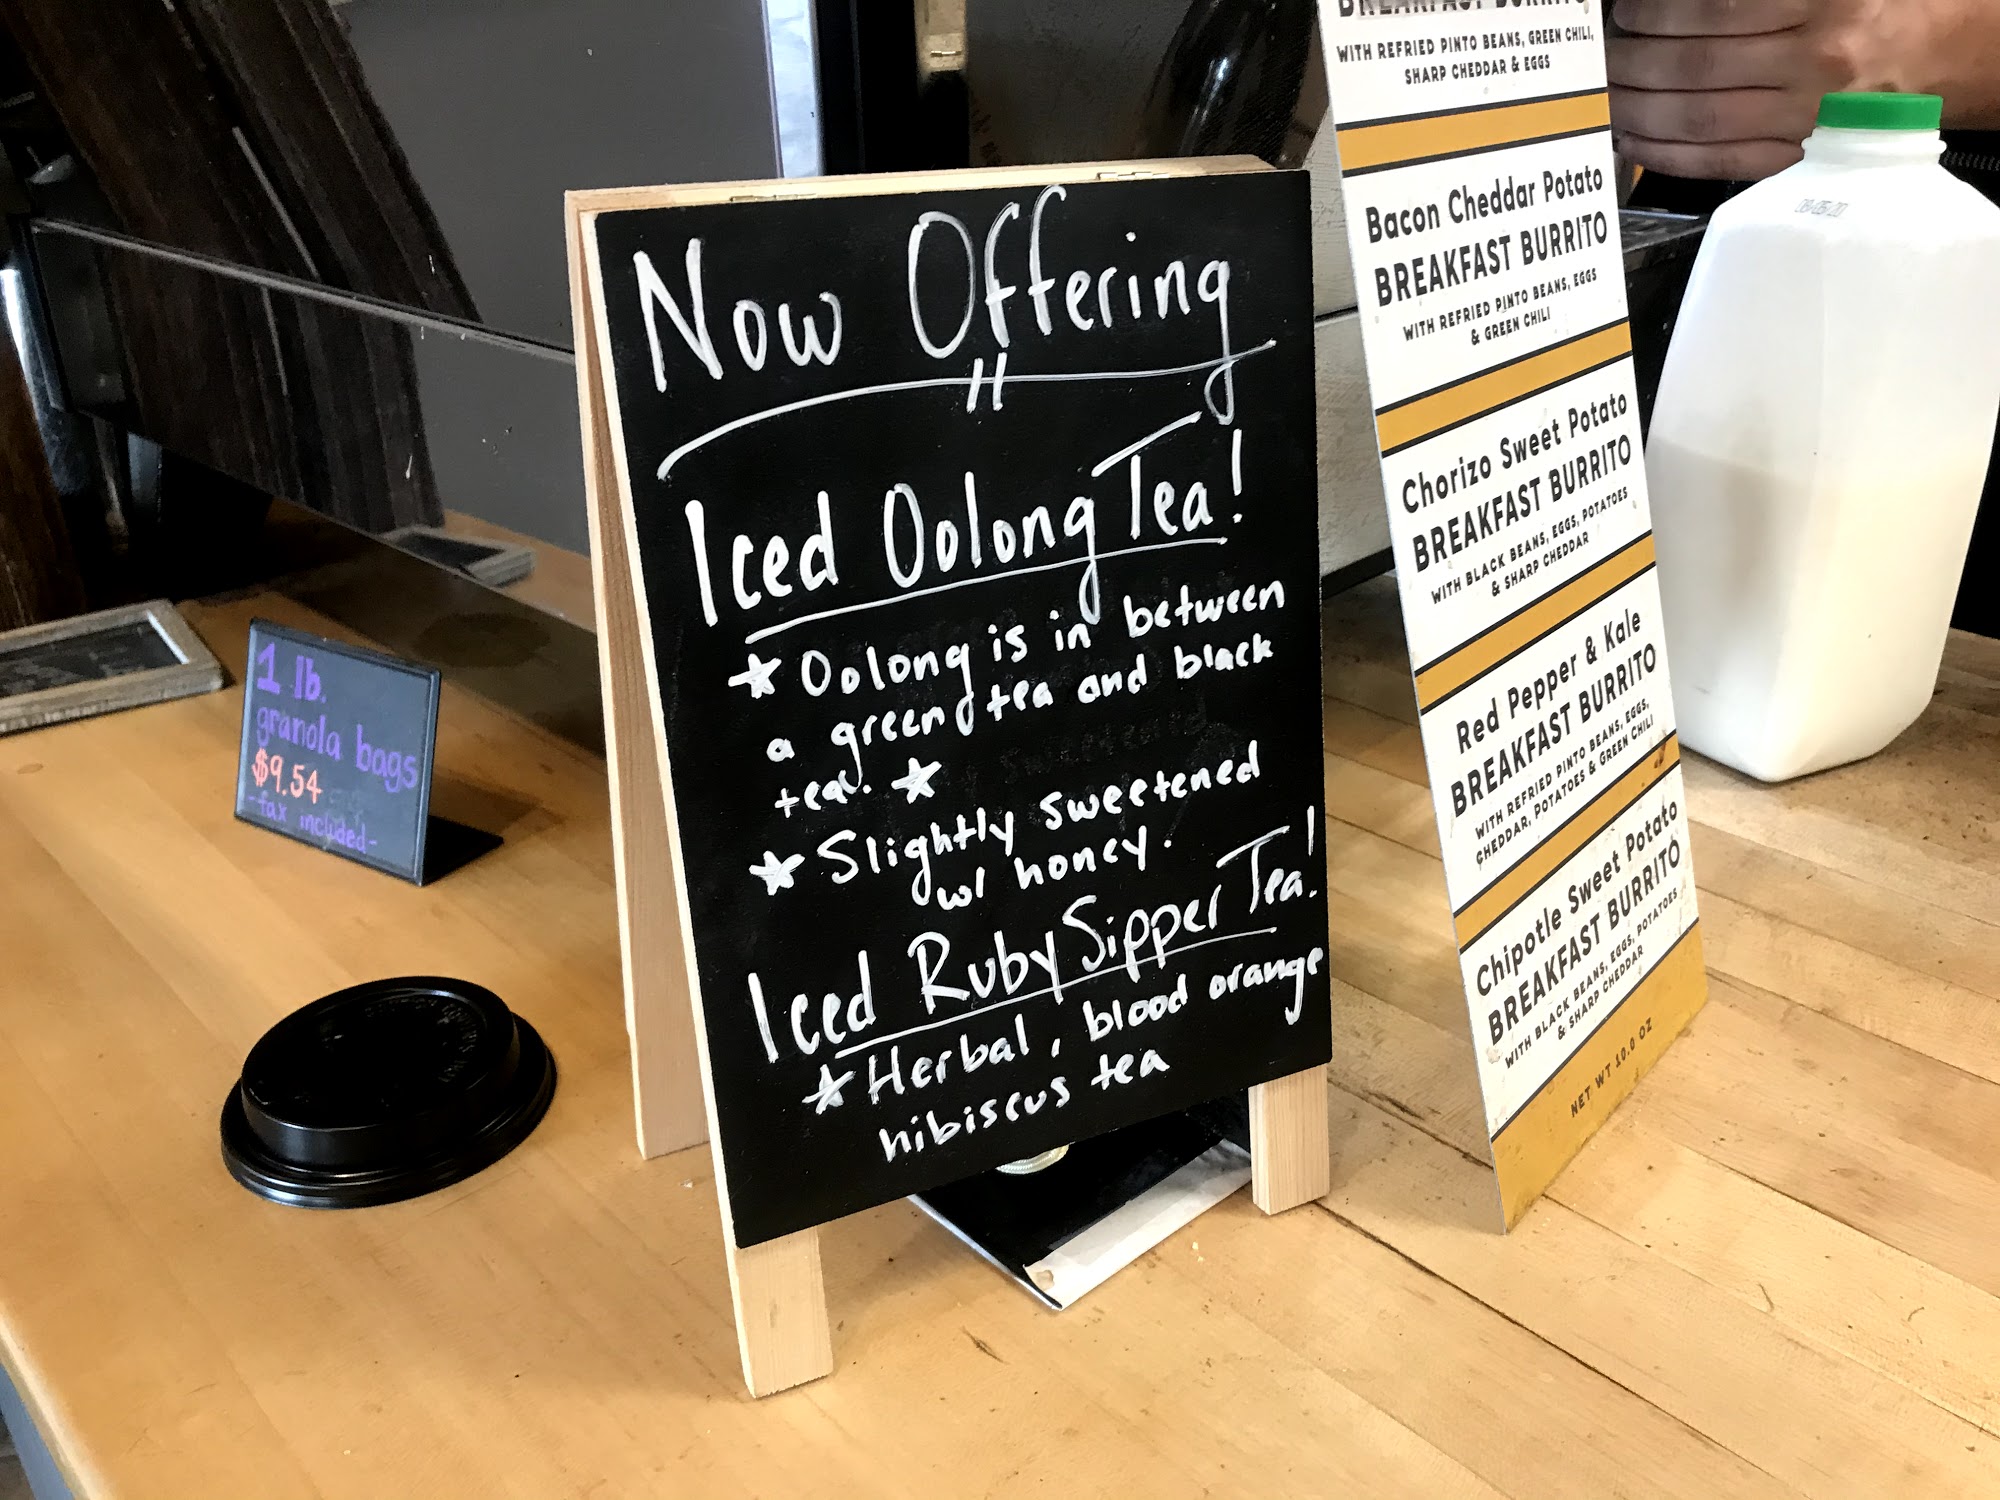 Now Offering
Iced Oolong Tea!
Oolong is in between
a green tea and black
tea!
Slightly sweetened
w/ honey.
Iced Ruby Sipper Tea!
Herbal, blood orange
hibiscus tea
1 lb.
granola bags
$9.54
-tax included-
BREAKFAST BURRITO
WITH REFRIED PINTO BEANS, GREEN CHILI,
SHARP CHEDDAR & EGGS
Bacon Cheddar Potato
BREAKFAST BURRITO
WITH REFRIED PINTO BEANS, EGGS
& GREEN CHILI
Chorizo Sweet Potato
BREAKFAST BURRITO
WITH BLACK BEANS, EGGS, POTATOES
& SHARP CHEDDAR
Red Pepper & Kale
BREAKFAST BURRITO
WITH REFRIED PINTO BEANS, EGGS,
CHEDDAR, POTATOES & GREEN CHILI
Chipotle Sweet Potato
BREAKFAST BURRITO
WITH BLACK BEANS, EGGS, POTATOES
& SHARP CHEDDAR
NET WT 10.0 OZ